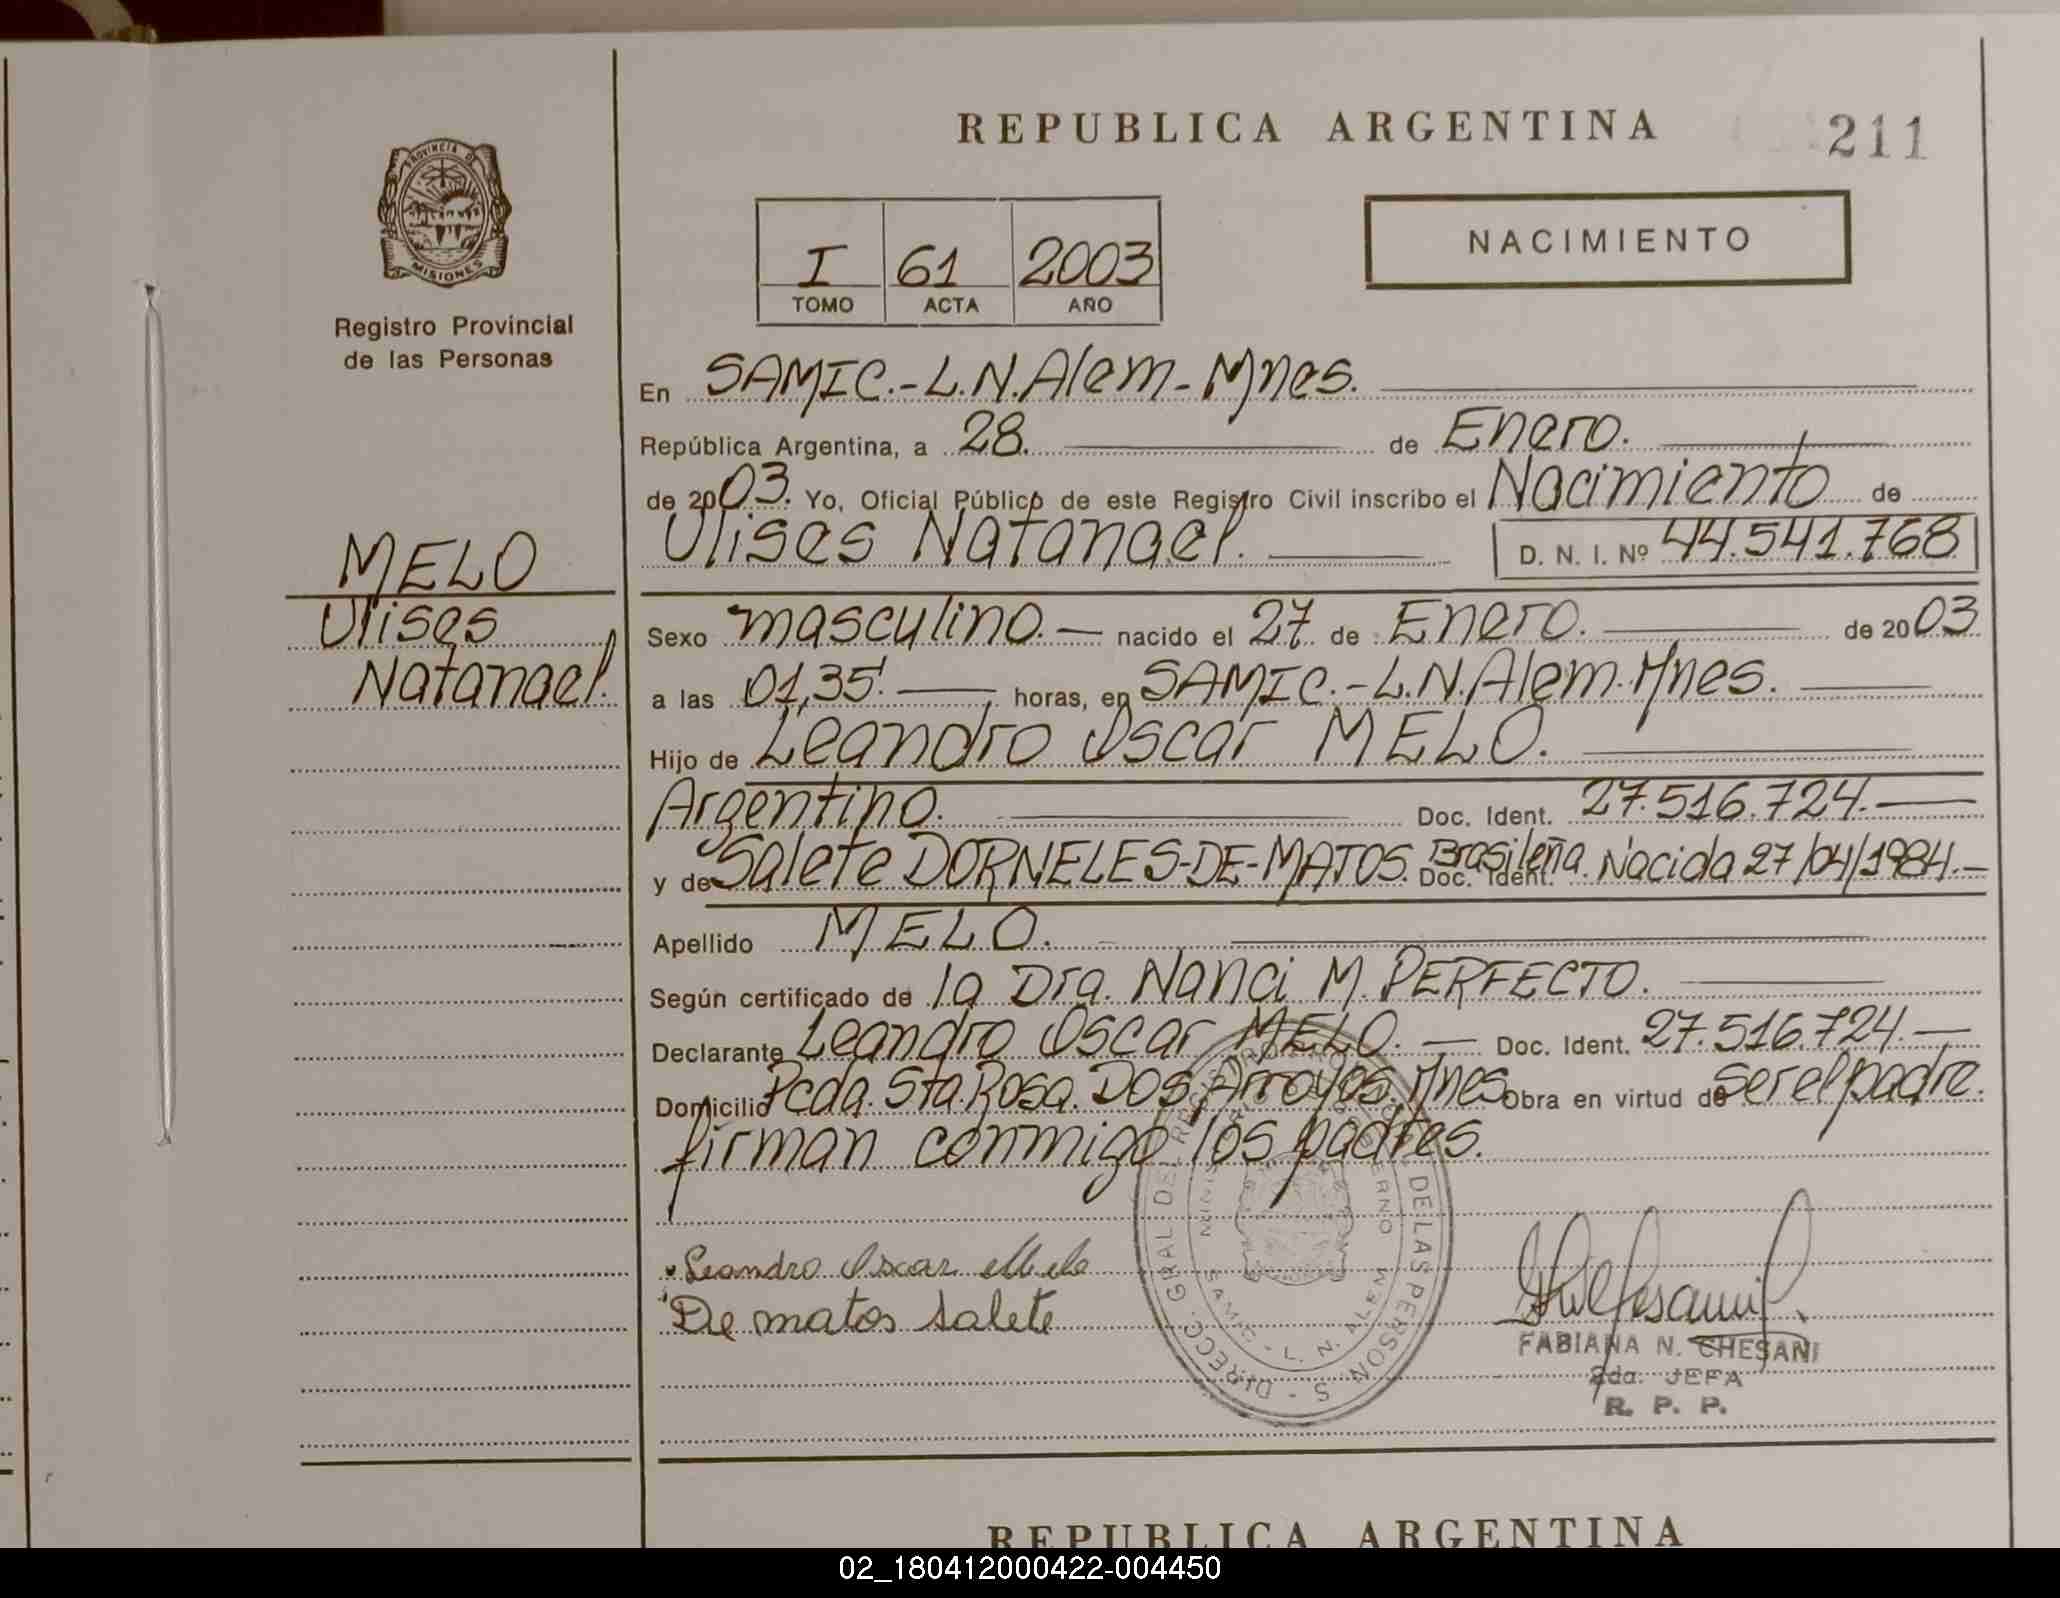 REPUBLICA ARGENTINA
211
PROVINCIA DE
MISIONES
Registro Provincial
de las Personas
I 61 2003
TOMO ACTA AÑO
NACIMIENTO
En SAMIC.-L.N.Alem-Mnes.
República Argentina, a 28. de Enero.
de 2003. Yo, Oficial Público de este Registro Civil inscribo el Nacimiento de
Ulises Natanael. D. N. I. Nº 44.541.768
MELO
Ulises
Natanael.
Sexo masculino.- nacido el 27 de Enero. de 2003
a las 01,35'. horas, en SAMIC.-L.N.Alem.Mnes.
Hijo de Leandro Oscar MELO.
Argentino. Doc. Ident. 27.516.724.-
y de Salete DORNELES-DE-MATOS. Doc. Ident. Brasileña. Nacida 27/04/1984.-
Apellido MELO.
Según certificado de la Dra. Nanci M. PERFECTO.
Declarante Leandro Oscar MELO. - Doc. Ident. 27.516.724.-
Domicilio Pcda. Sta.Rosa. Dos Arroyos. Mnes Obra en virtud de Ser el padre.
firman conmigo los padres.
Leandro Oscar Melo
De matos Salete
DIRECC. GRAL DEL DE LAS PERSON S
SAMIC - L. N. ALEM
FABIANA N. CHESANI
2da. JEFA
R. P. P.
REPUBLICA ARGENTINA
02_180412000422-004450